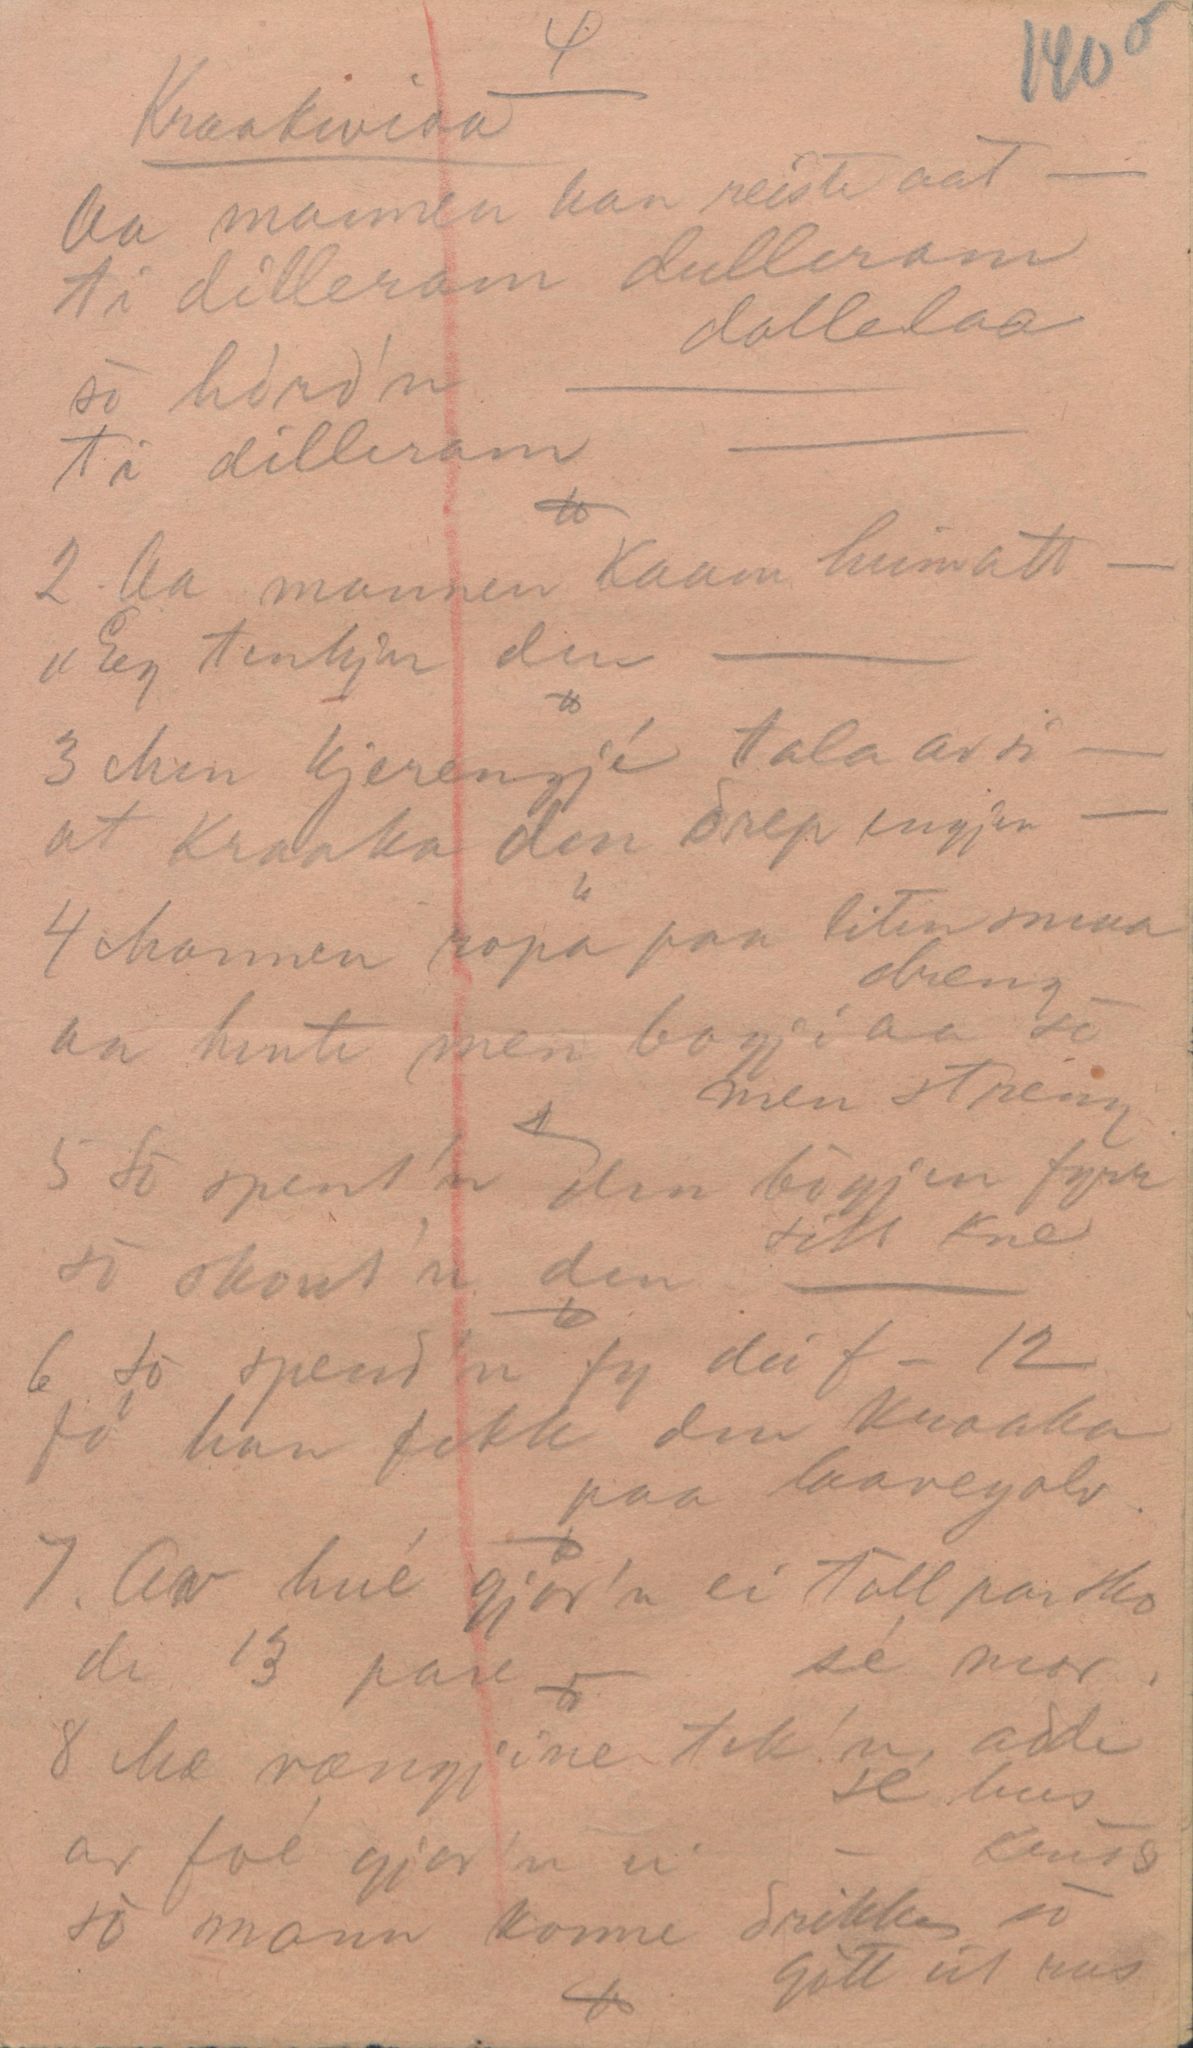 4
140 5
Kraakivisa
Aa mannen han reiste aat —
ti dilleram dulleram
dollelaa
sò hòrd'n
ti dilleram
2. Aa mannen kaam heimatt —
Eg tenkjer den
3 Men kjerengjé tala av si —
at kraaka den drep ingjen —
4 Mannen ropa paa liten smaa
dreng
aa hente men bogji aa sò
men streng
5 Sò spent'n den bògjen fyrr
sitt kne
sò skout'n den
6 Sò spend'n fy dei f – 12
fò han fekk den kraaka
paa laavegolv.
7. Av hué gjor'n ei toll par sko
de 13 pare sé mor.
8 Mæ vængjine tek'n, adde
sé hus
av foé gjor'n ei – krus
sò mann konne drikke sò
gott eit rus